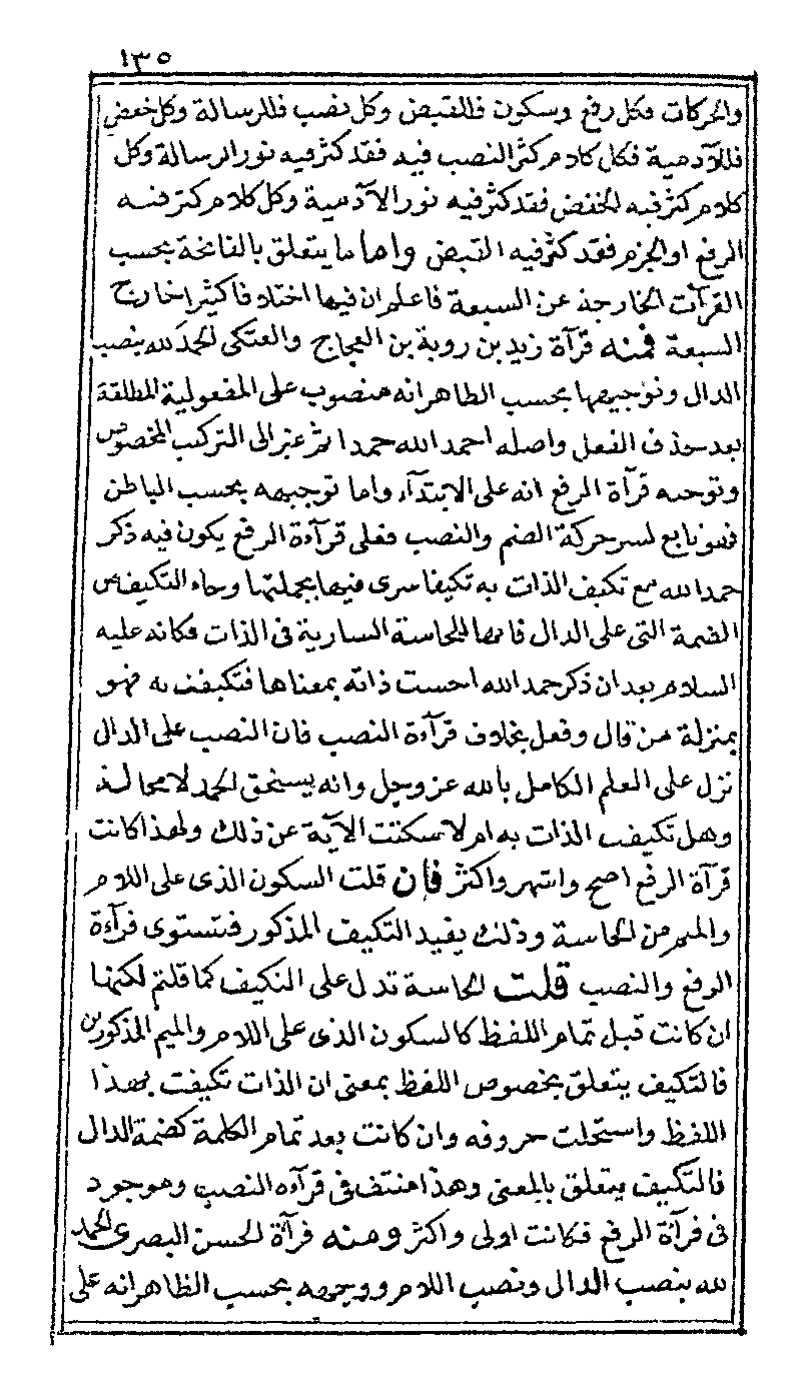 ١٣٥
والحركات فكل رفع وسكون فالقبض وكل نصب فالرسالة وكل خفض
فللآدمية فكل كلام كثر النصب فيه فقد كثر فيه نور الرسالة وكل
كلام كثر فيه الخفض فقد كثر فيه نور الآدمية وكل كلام كثر فيه
الرفع او الجزم فقد كثر فيه القبض واما ما يتعلق بالفاتحة بحسب
القرآت الخارجة عن السبعة فاعلم ان فيها اختلافا كثيرا خارج
السبعة فمنه قرآة زيد بن روبة بن العجاج والعتكى الحمد لله بنصب
الدال وتوجيهها بحسب الظاهر انه منصوب على المفعولية المطلقة
بعد حذف الفعل واصله احمد الله حمدا ثم غير الى التركيب المخصوص
وتوجيه قرآة الرفع انه على الابتدآء واما توجيهه بحسب الباطن
فهو تابع لسر حركة الضم والنصب فعلى قرآءة الرفع يكون فيه ذكر
حمد الله مع تكيف الذات به تكيفا سرى فيها بجملتها وجاء التكيف من
الضمة التى على الدال فانها للحاسة السارية فى الذات فكانه عليه
السلام بعد ان ذكر حمد الله احست ذاته بمعناها فتكيفت به فهو
بمنزلة من قال وفعل بخلاف قرآءة النصب فان النصب على الدال
نزل على العلم الكامل بالله عز وجل وانه يستحق الحمد لا محالة
وهل تكيفت الذات به ام لا سكتت الآية عن ذلك ولهذا كانت
قرآة الرفع اصح واشهر واكثر فان قلت السكون الذى على اللام
والميم من الحاسة وذلك يفيد التكيف المذكور فتستوى قرآءة
الرفع والنصب قلت الحاسة تدل على التكيف كما قلتم لكنها
ان كانت قبل تمام اللفظ كالسكون الذى على اللام والميم المذكورين
فالتكيف يتعلق بخصوص اللفظ بمعنى ان الذات تكيفت بهذا
اللفظ واستحلت حروفه وان كانت بعد تمام الكلمة كضمة الدال
فالتكيف يتعلق بالمعنى وهذا منتف فى قرآءه النصب وموجود
فى قرآة الرفع فكانت اولى واكثر ومنه قرآة الحسن البصرى الحمد
لله بنصب الدال ونصب اللام ووجهه بحسب الظاهر انه على